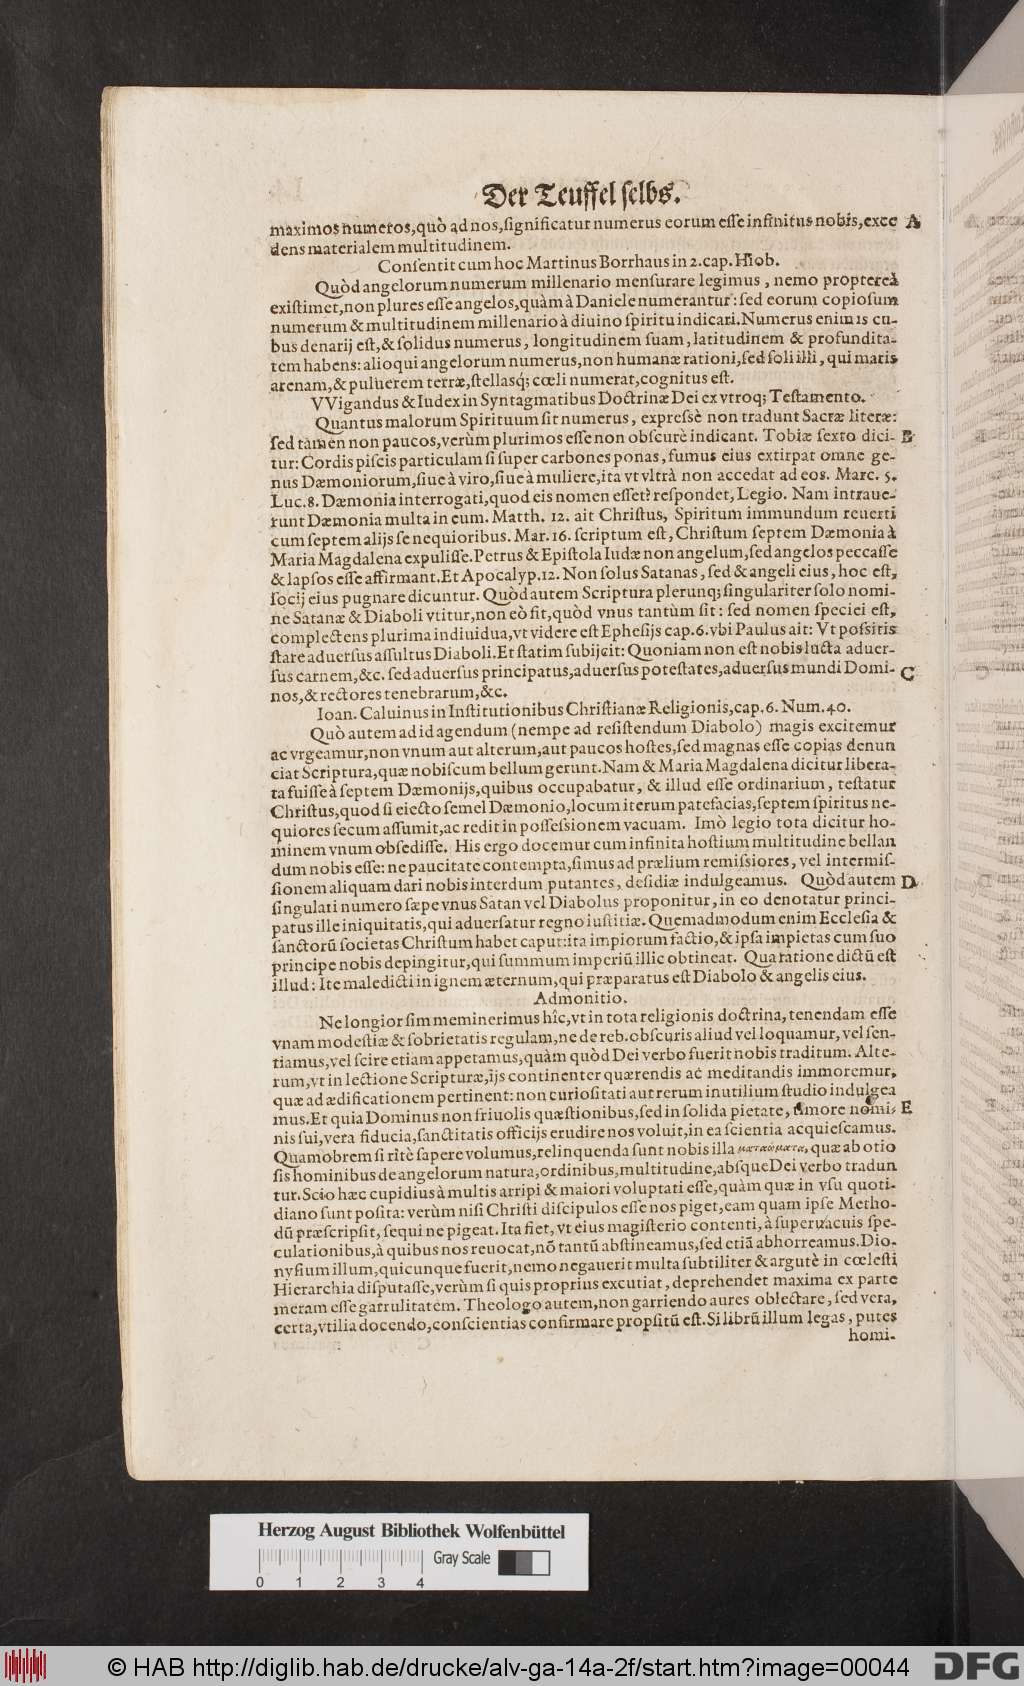 Der Teuffel ſelbs.
maximos numeros,quò ad nos,ſignificatur numerus eorum eſſe infinitus nobis,exce A
dens materialem multitudinem.
Conſentit cum hoc Martinus Borrhaus in 2.cap.Hiob.
Quòd angelorum numerum millenario menſurare legimus, nemo proptereà
exiſtimet,non plures eſſe angelos,quàm à Daniele numerantur: ſed eorum copioſum
numerum & multitudinem millenario à diuino ſpiritu indicari.Numerus enim is cu-
bus denarij eſt,& ſolidus numerus, longitudinem ſuam, latitudinem & profundita-
tem habens: alioqui angelorum numerus,non humanæ rationi,ſed ſoli illi, qui maris
arenam,& puluerem terræ,ſtellasq́; cœli numerat,cognitus eſt.
VVigandus & Iudex in Syntagmatibus Doctrinæ Dei ex vtroq; Teſtamento.
Quantus malorum Spirituum ſit numerus, expreſsè non tradunt Sacræ literæ:
ſed tamen non paucos,verùm plurimos eſſe non obſcurè indicant. Tobiæ ſexto dici- B
tur: Cordis piſcis particulam ſi ſuper carbones ponas, fumus eius extirpat omne ge-
nus Dæmoniorum,ſiue à viro,ſiue à muliere,ita vt vltrà non accedat ad eos. Marc. 5.
Luc.8. Dæmonia interrogati,quod eis nomen eſſet? reſpondet, Legio. Nam intraue-
runt Dæmonia multa in eum. Matth. 12. ait Chriſtus, Spiritum immundum reuerti
cum ſeptem alijs ſe nequioribus. Mar. 16. ſcriptum eſt, Chriſtum ſeptem Dæmonia à
Maria Magdalena expuliſſe.Petrus & Epiſtola Iudæ non angelum,ſed angelos peccaſſe
& lapſos eſſe affirmant.Et Apocalyp.12. Non ſolus Satanas, ſed & angeli eius, hoc eſt,
ſocij eius pugnare dicuntur. Quòd autem Scriptura plerunq; ſingulariter ſolo nomi-
ne Satanæ & Diaboli vtitur,non eò fit,quòd vnus tantùm ſit: ſed nomen ſpeciei eſt,
complectens plurima indiuidua,vt videre eſt Epheſijs cap.6.vbi Paulus ait: Vt poſsitis
ſtare aduerſus aſſultus Diaboli.Et ſtatim ſubijcit: Quoniam non eſt nobis lucta aduer-
ſus carnem,&c. ſed aduerſus principatus,aduerſus poteſtates,aduerſus mundi Domi- C
nos,& rectores tenebrarum,&c.
Ioan. Caluinus in Inſtitutionibus Chriſtianæ Religionis,cap.6. Num.40.
Quò autem ad id agendum (nempe ad reſiſtendum Diabolo) magis excitemur
ac vrgeamur,non vnum aut alterum,aut paucos hoſtes,ſed magnas eſſe copias denun
ciat Scriptura,quæ nobiſcum bellum gerunt.Nam & Maria Magdalena dicitur libera-
ta fuiſſe à ſeptem Dæmonijs,quibus occupabatur, & illud eſſe ordinarium, teſtatur
Chriſtus,quod ſi eiecto ſemel Dæmonio,locum iterum patefacias,ſeptem ſpiritus ne-
quiores ſecum aſſumit,ac redit in poſſeſsionem vacuam. Imò legio tota dicitur ho-
minem vnum obſediſſe. His ergo docemur cum infinita hoſtium multitudine bellan
dum nobis eſſe: ne paucitate contempta,ſimus ad prælium remiſsiores, vel intermiſ-
ſionem aliquam dari nobis interdum putantes, deſidiæ indulgeamus. Quòd autem D
ſingulati numero ſæpe vnus Satan vel Diabolus proponitur, in eo denotatur princi-
patus ille iniquitatis,qui aduerſatur regno iuſtitiæ. Quemadmodum enim Eccleſia &
ſanctorũ ſocietas Chriſtum habet caput:ita impiorum factio,& ipſa impietas cum ſuo
principe nobis depingitur,qui ſummum imperiũ illic obtineat. Qua ratione dictũ eſt
illud: Ite maledicti in ignem æternum,qui præparatus eſt Diabolo & angelis eius.
Admonitio.
Ne longior ſim meminerimus hîc,vt in tota religionis doctrina, tenendam eſſe
vnam modeſtiæ & ſobrietatis regulam,ne de reb.obſcuris aliud vel loquamur, vel ſen-
tiamus,vel ſcire etiam appetamus,quàm quòd Dei verbo fuerit nobis traditum. Alte-
rum,vt in lectione Scripturæ,ijs continenter quærendis ac meditandis immoremur,
quæ ad ædificationem pertinent: non curioſitati aut rerum inutilium ſtudio indulgea
mus.Et quia Dominus non friuolis quæſtionibus,ſed in ſolida pietate, timore nomi- E
nis ſui,vera fiducia,ſanctitatis officijs erudire nos voluit,in ea ſcientia acquieſcamus.
Quamobrem ſi ritè ſapere volumus,relinquenda ſunt nobis illa ματαιώματα, quæ ab otio
ſis hominibus de angelorum natura,ordinibus,multitudine,absque Dei verbo tradun
tur.Scio hæc cupidius à multis arripi & maiori voluptati eſſe,quàm quæ in vſu quoti-
diano ſunt poſita: verùm niſi Chriſti diſcipulos eſſe nos piget,eam quam ipſe Metho-
dũ præſcripſit, ſequi ne pigeat. Ita fiet, vt eius magiſterio contenti, à ſuperuacuis ſpe-
culationibus,à quibus nos reuocat,nõ tantũ abſtineamus,ſed etiã abhorreamus.Dio-
nyſium illum,quicunque fuerit,nemo negauerit multa ſubtiliter & argutè in cœleſti
Hierarchia diſputaſſe,verùm ſi quis proprius excutiat, deprehendet maxima ex parte
meram eſſe garrulitatem. Theologo autem,non garriendo aures oblectare, ſed vera,
certa,vtilia docendo,conſcientias confirmare propſitũ eſt. Si librũ illum legas, putes
homi-
Herzog August Bibliothek Wolfenbüttel
Gray Scale
0 1 2 3 4
© HAB http://diglib.hab.de/drucke/alv-ga-14a-2f/start.htm?image=00044
DFG